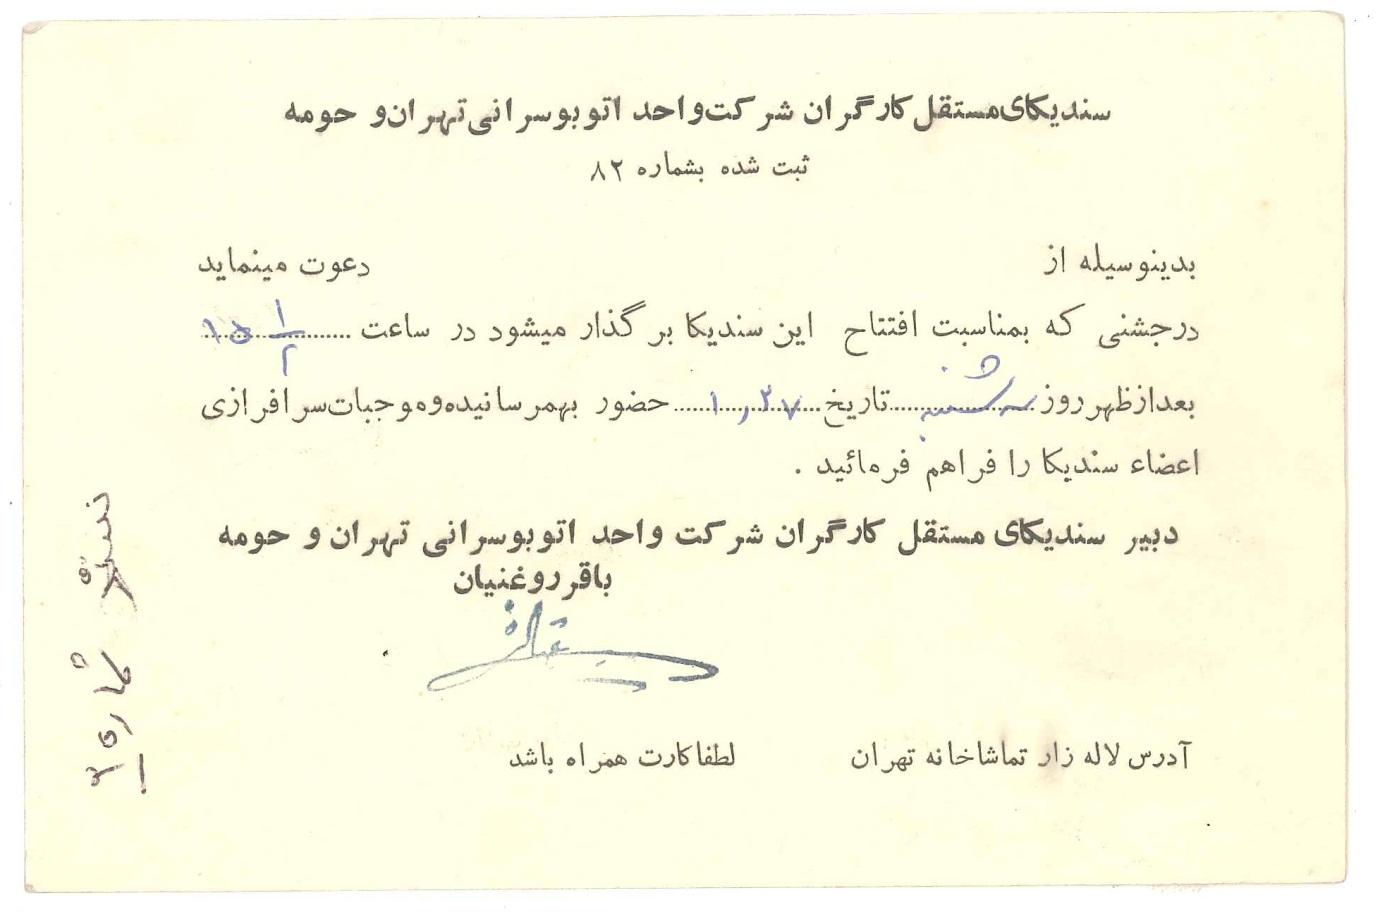 سندیکای مستقل کارگران شرکت واحد اتوبوسرانی تهران و حومه
ثبت شده بشماره ۸۲
بدینوسیله از دعوت مینماید
درجشنی که بمناسبت افتتاح این سندیکا برگذار میشود در ساعت
بعدازظهر روز سه‌شنبه تاریخ ۲۷ر۱۰ حضور بهمرسانیده و موجبات سرافرازی
اعضاء سندیکا را فراهم فرمائید .
دبیر سندیکای مستقل کارگران شرکت واحد اتوبوسرانی تهران و حومه
باقر روغنیان
آدرس لاله زار تماشاخانه تهران لطفا کارت همراه باشد